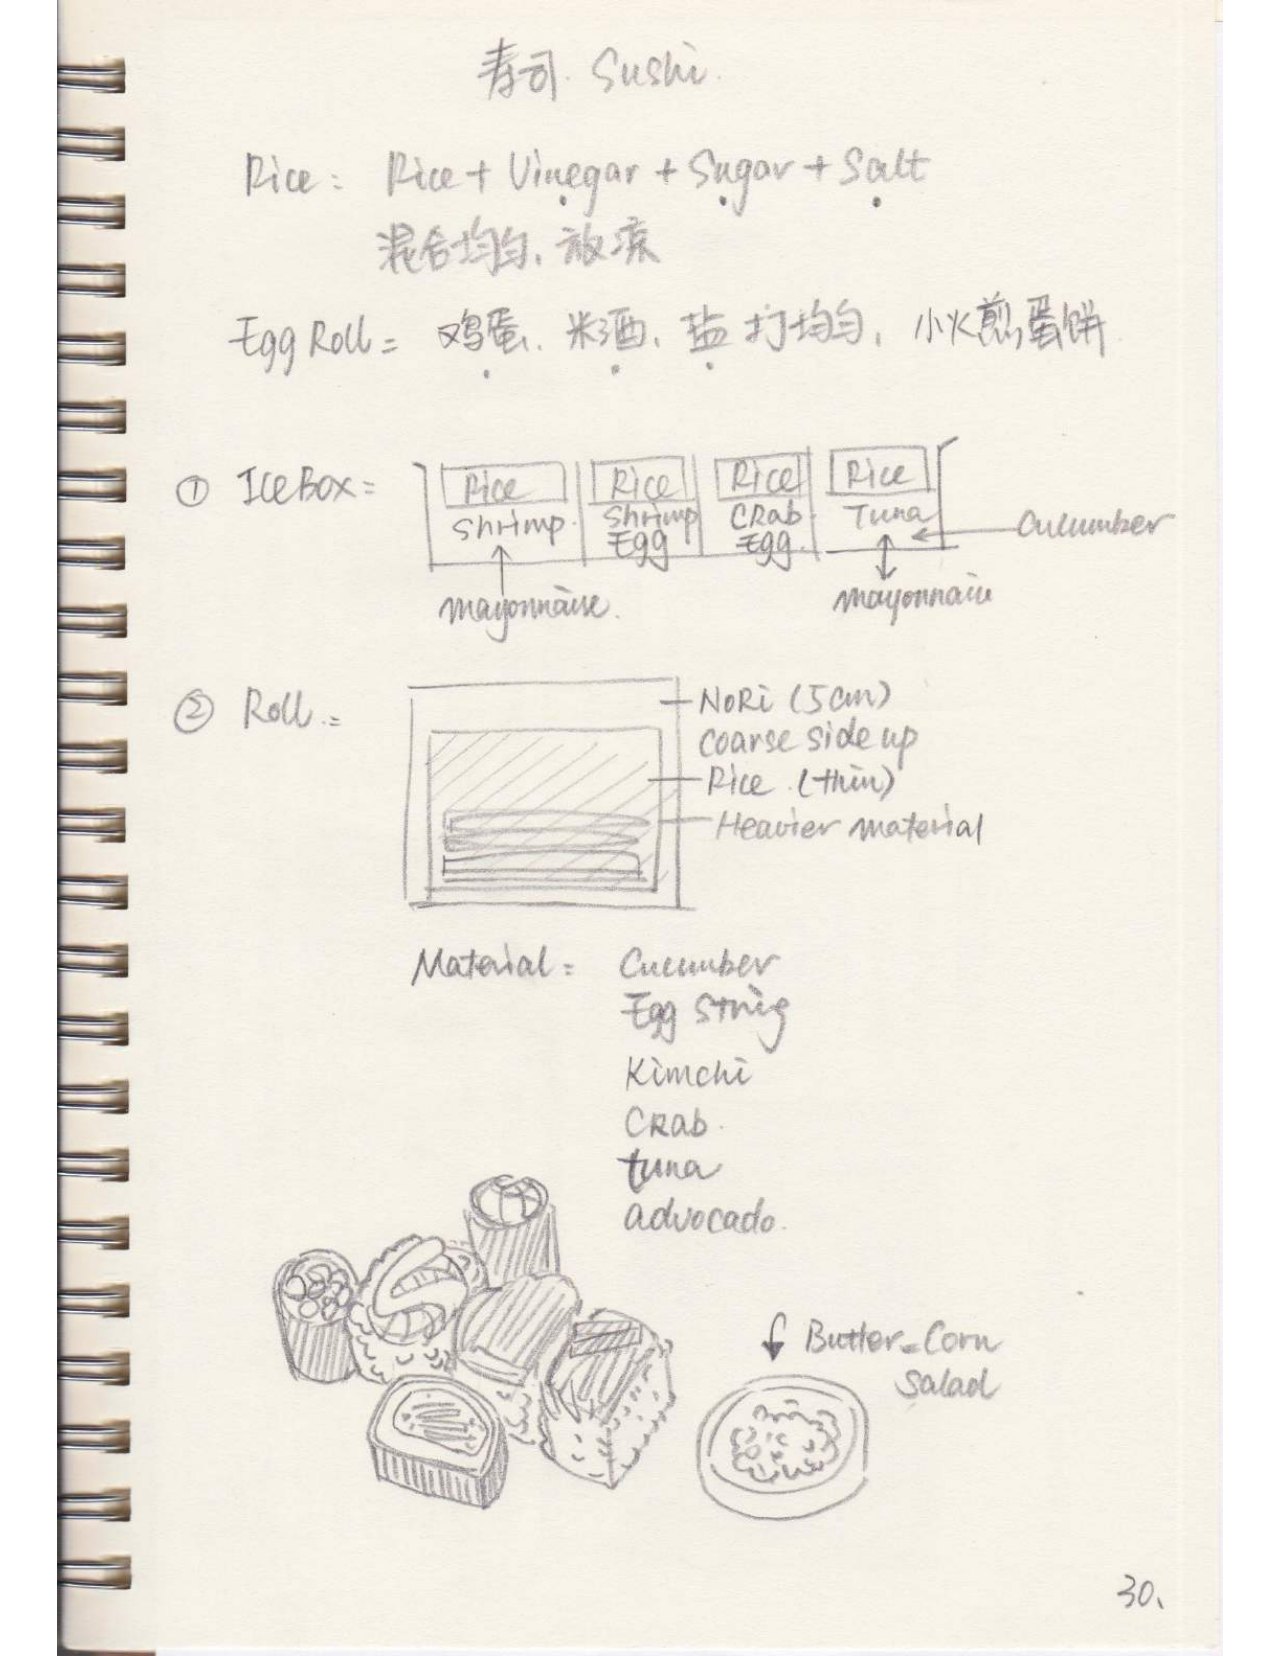 寿司. Sushi.
Rice: Rice + Vinegar + Sugar + Salt
混合均匀, 放凉
Egg Roll = 鸡蛋, 米酒, 盐 打均匀, 小火煎蛋饼
① Ice Box =
Rice Rice Rice Rice
Shrimp Shrimp CRab Tuna
Egg Egg
Cucumber
mayonnaise. mayonnaise
② Roll =
NoRi (5cm)
Coarse side up
Rice (thin)
Heavier material
Material = Cucumber
Egg String
Kimchi
CRab
tuna
advocado.
Butter-Corn
Salad
30.